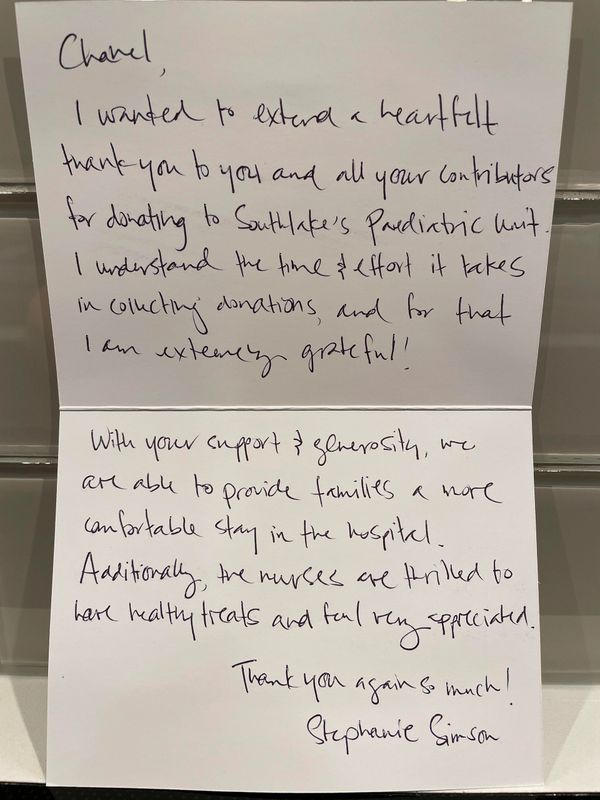 Chanel,
I wanted to extend a heartfelt
thank you to you and all your contributors
for donating to Southlake's Paediatric Unit.
I understand the time & effort it takes
in collecting donations, and for that
I am extremely grateful!
With your support & generosity, we
are able to provide families a more
comfortable stay in the hospital.
Additionally, the nurses are thrilled to
have healthy treats and feel very appreciated.
Thank you again so much!
Stephanie Simson